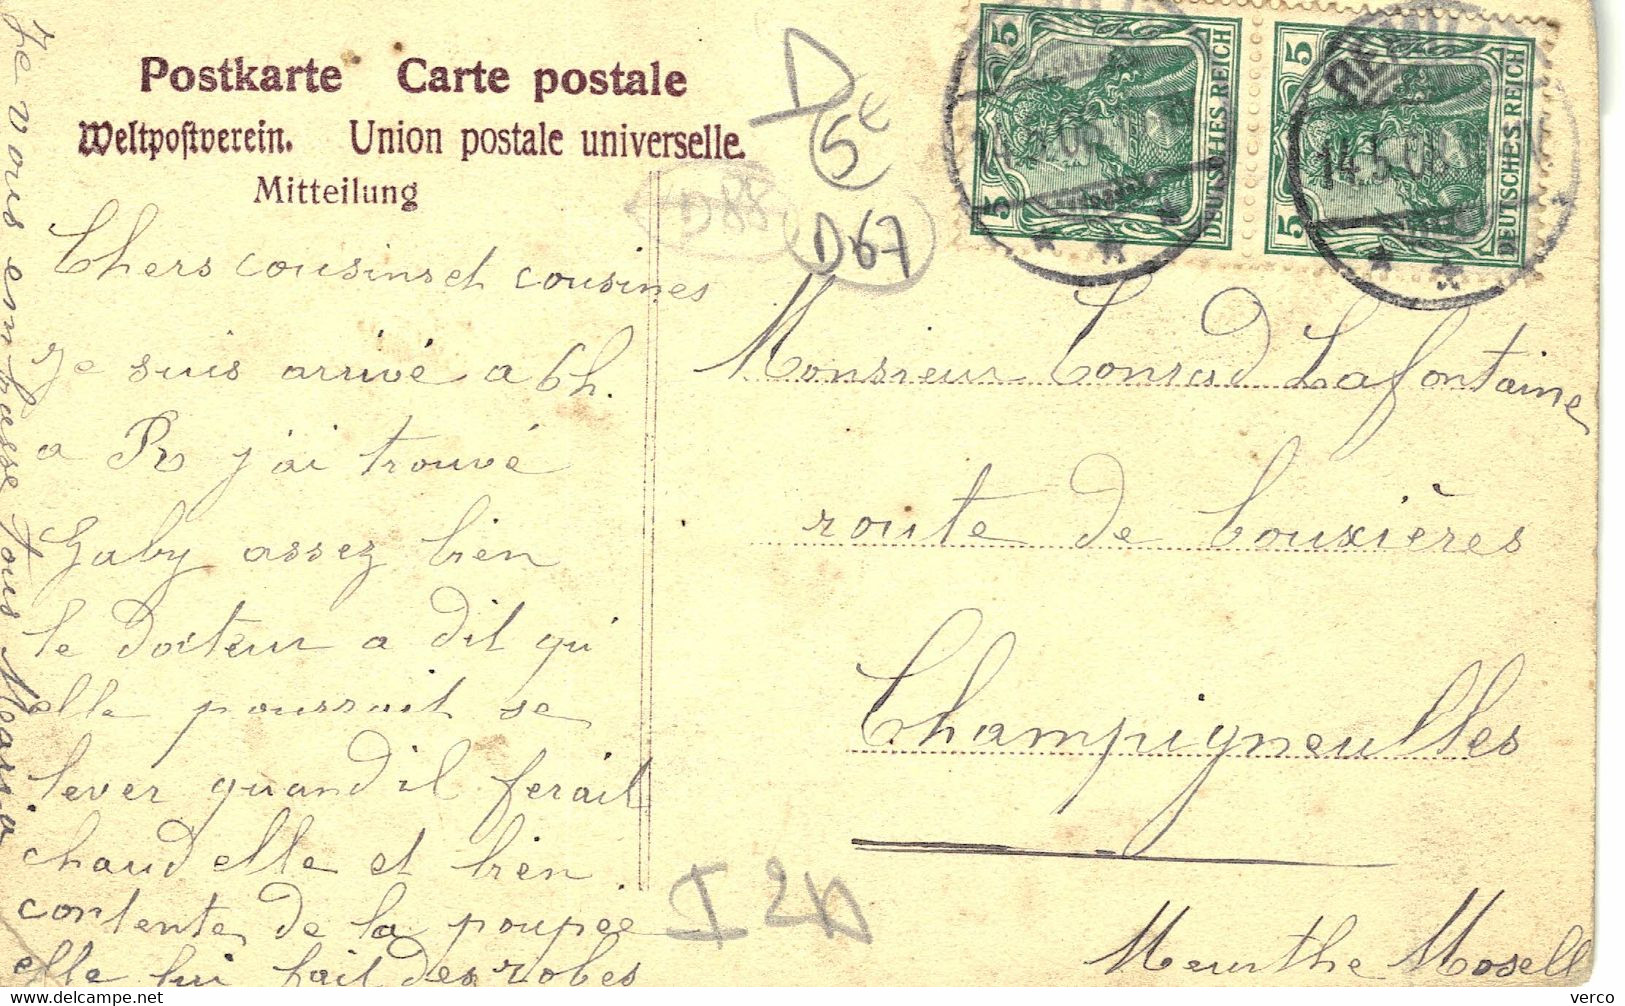 Postkarte Carte postale
Weltpostverein. Union postale universelle.
Mitteilung
D
5€
D88
D67
5 DEUTSCHES REICH 5
5 DEUTSCHES REICH 5
14.5.08
Chers cousins et cousines
Je suis arrivé a 6h.
a R j'ai trouvé
Gaby assez bien
le docteur a dit qu'
elle pourrait se
lever quand il ferait
chaud elle et bien
contente de la poupee
elle lui fait des robes
Je vous embrasse tous Maria
Monsieur Conrad Lafontaine
route de bouxières
Champigneulles
Meurthe Mosell
I 2N
verco